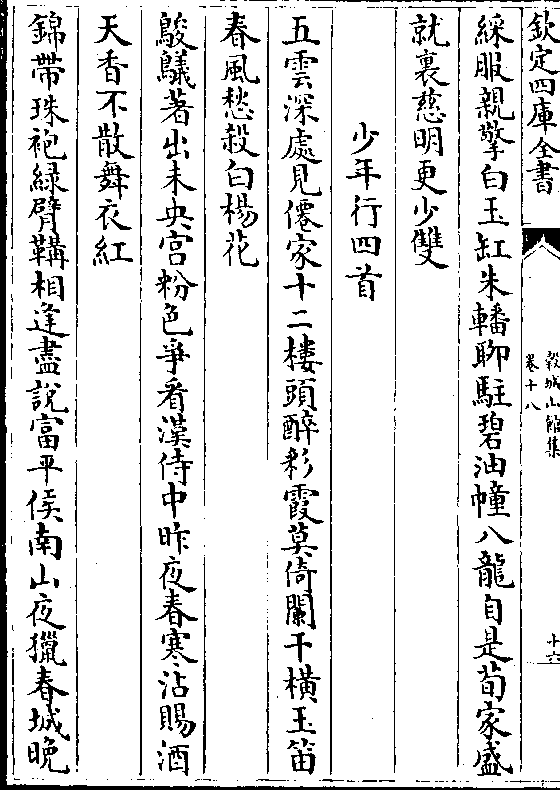 欽定四庫全書
穀城山館集
卷十八
十六
綵服親擎白玉缸朱轓聊駐碧油幢八龍自是荀家盛
就裏慈明更少雙
少年行四首
五雲深處見僊家十二樓頭醉彩霞莫倚闌干橫玉笛
春風愁殺白楊花
鵔鸃著出未央宮粉色爭看漢侍中昨夜春寒沾賜酒
天香不散舞衣紅
錦帶珠袍綠臂鞲相逢盡說富平侯南山夜獵春城晚